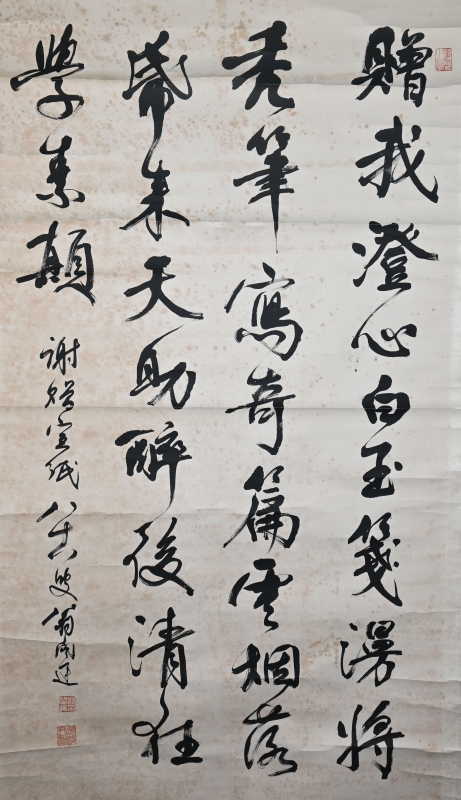 贈我澄心白玉箋漫將
禿筆寫奇篇雲烟落
紙来天助醉後清狂
學素顛
謝贈宣紙八十六叟翁闓運